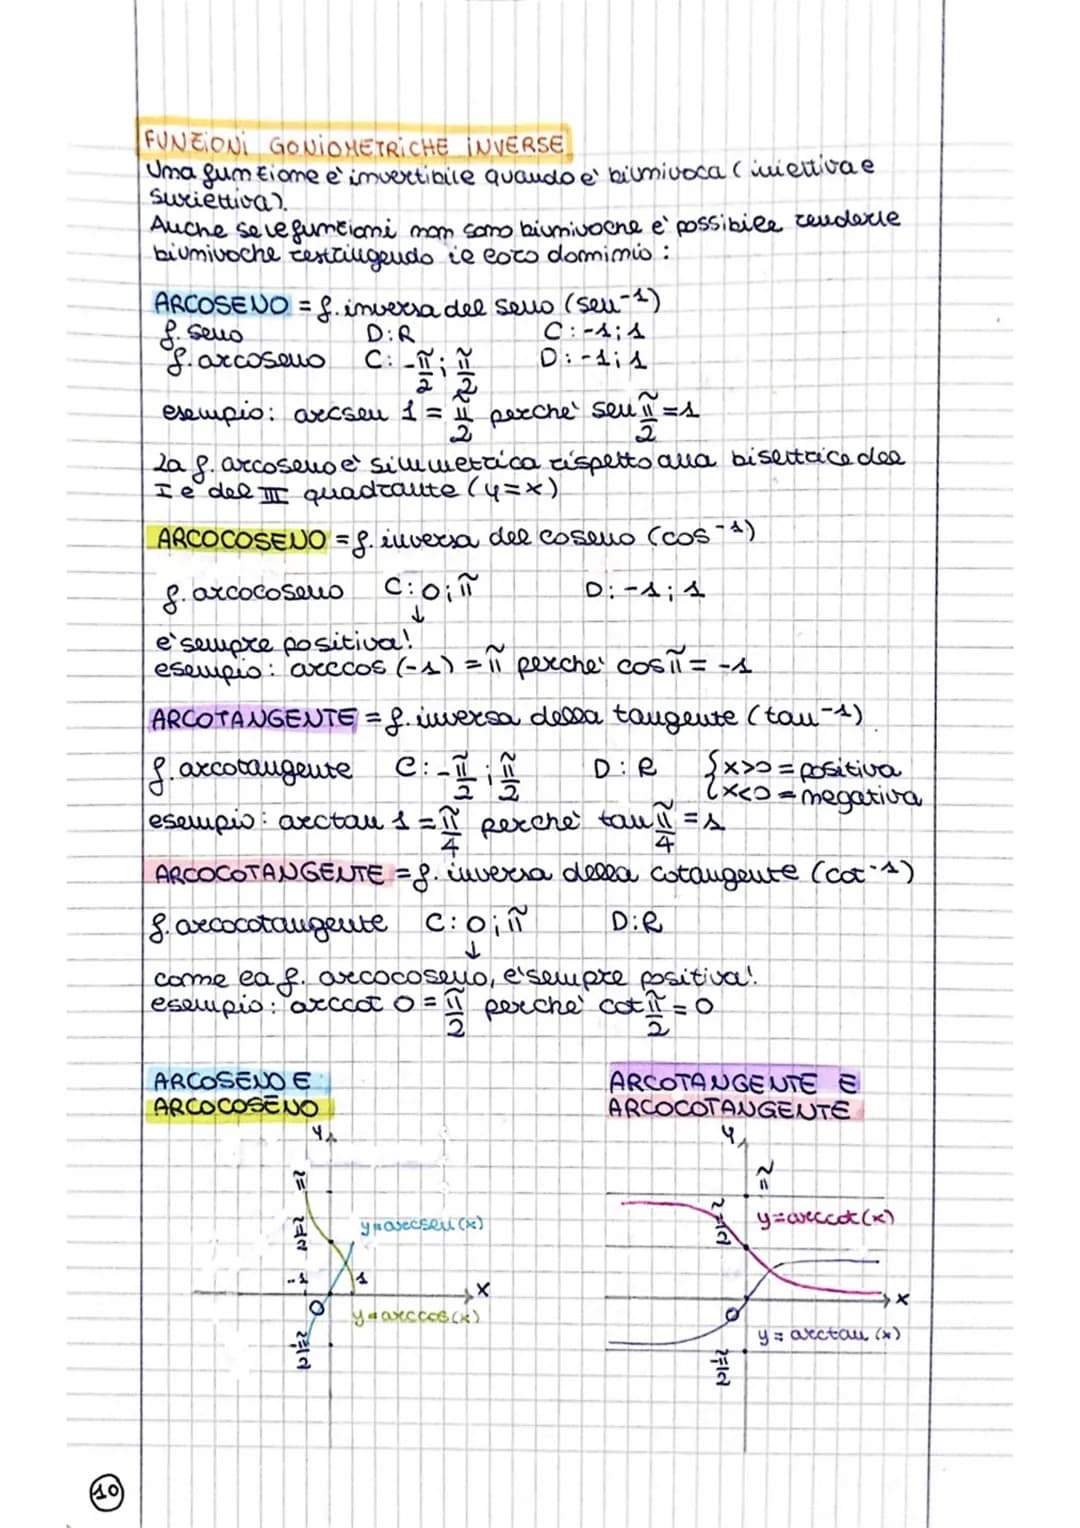 FUNZIONI GONIOMETRICHE INVERSE
Una funzione è invertibile quando è biunivoca (iniettiva e
suriettiva).
Anche se le funzioni non sono biunivoche è possibile renderle
biunivoche restringendo il loro dominio:
ARCOSENO = f. inversa del seno (sen⁻¹)
f. seno D: R C: -1; 1
f. arcoseno C: -π/2; π/2 D: -1; 1
esempio: arcsen 1 = π/2 perché sen π/2 = 1
la f. arcoseno è simmetrica rispetto alla bisettrice del
I e del III quadrante (y=x)
ARCOCOSENO = f. inversa del coseno (cos⁻¹)
f. arcocoseno C: 0; π D: -1; 1
↓
è sempre positiva!
esempio: arccos (-1) = π perché cos π = -1
ARCOTANGENTE = f. inversa della tangente (tan⁻¹)
f. arcotangente C: -π/2; π/2 D: R { x>0 = positiva
x<0 = negativa
esempio: arctan 1 = π/4 perché tan π/4 = 1
ARCOCOTANGENTE = f. inversa della cotangente (cot⁻¹)
f. arcocotangente C: 0; π D: R
↓
come la f. arcocoseno, è sempre positiva!
esempio: arccot 0 = π/2 perché cot π/2 = 0
ARCOSENO E
ARCOCOSENO
y
π
π/2
y=arcsen(x)
-1
1
x
0
y=arccos(x)
-π/2
ARCOTANGENTE E
ARCOCOTANGENTE
y
π
π/2
y=arccot(x)
x
0
y=arctan(x)
-π/2
10